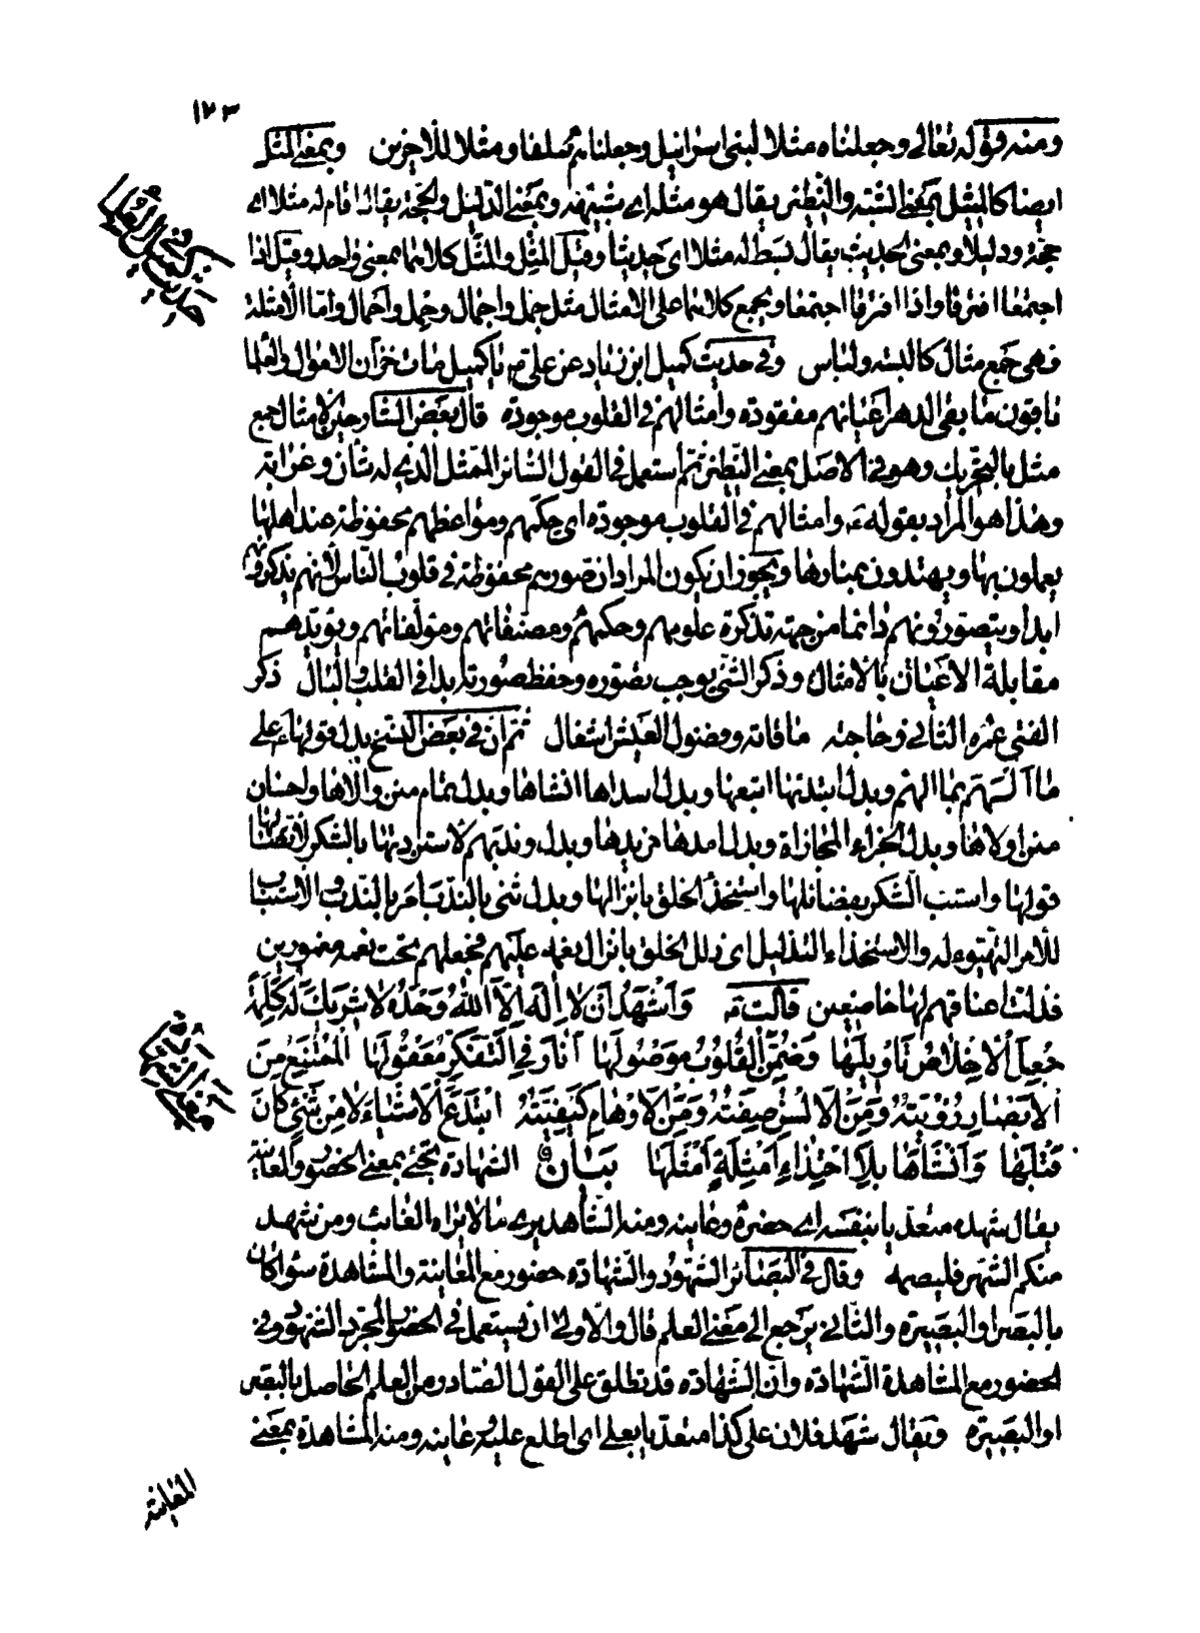 ١٢٣
ومنه قوله تعالى وجعلناه مثلا لبنى اسرائيل وجعلناهم سلفا ومثلا للآخرين وبمعنى المثل
ايضا كالمِثل بمعنى الشبه والنظير يقال هو مثله اى شبيهه وبمعنى الدليل والحجة يقال اقام له مثلا اى
حجة ودليلا وبمعنى الحديث يقال بسط له مثلا اى حديثا وقيل المِثل والمَثل كلاهما بمعنى واحد وقيل اذا
اجتمعا افترقا واذا افترقا اجتمعا ويجمع كلاهما على الامثال مثل جمل واجمال وحمل واحمال واما الامثلة
فهى جمع مثال كالبسة ولباس وفى حديث كميل ابن زياد عن على يا كميل مات خزان الاموال والعلماء
باقون ما بقى الدهر اعيانهم مفقودة وامثالهم فى القلوب موجودة قال بعض الشارحين الامثال جمع
مثل بالتحريك وهو فى الاصل بمعنى النظير ثم استعمل فى القول السائر الممثل الذى له شأن وغرابة
وهذا هو المراد بقوله وامثالهم فى القلوب موجودة اى حكمهم ومواعظهم محفوظة عند اهلها
يعملون بها ويهتدون بمنارها ويجوز ان يكون المراد ان صورهم محفوظة فى قلوب الناس لانهم يذكرونهم
ابدا ويتصورونهم دائما من جهة تذكرة علومهم وحكمهم ومصنفاتهم ومؤلفاتهم ويؤيدهم
مقابلة الاعيان بالامثال وذكر الشئ يوجب تصوره وحفظ صورته ابدا فى القلب والبال ذكر
الفتى عمره الثانى وحاجته ما فاته وفضول العيش اشغال ثم ان فى بعض النسخ بدل قولها على
ما الهم بما الهم وبدل ابتدئها ابتدعها وبدل اسداها انشاها وبدل تمام منن والاها واحسان
منن اولاها وبدل الجزاء المجازاة وبدل امدها مزيدها وبدل وندبهم لاستزادتها بالشكر لاتصالها
قولها واستتب الشكر بفضائلها واستخذأ الخلق بانزالها وبدل ثنى بالندب امر بالندب والاستتباب
للامر التهيؤ له والاستخذاء التذليل اى ذلل الخلق بانزال نعمه عليهم فجعلهم تحت نعمه مغمورين
فذلت اعناقهم لها خاضعين قالت وَاَشْهَدُ اَنْ لا اِلهَ اِلاَّ اللهُ وَحْدَهُ لا شَرِيكَ لَهُ كَلِمَةٌ
جُعِلَ الاِخْلاصُ تَاْوِيلَها وَضُمِّنَ القُلُوبُ مَوْصُولَها اَنارَ فِى التَّفَكُّرِ مَعْقُولَها الْمُمْتَنِعُ مِنَ
الاَبْصارِ رُؤْيَتُهُ وَمِنَ الاَلْسُنِ صِفَتُهُ وَمِنَ الاَوْهامِ كَيْفِيَّتُهُ ابْتَدَعَ الاَشْياءَ لا مِنْ شَىْءٍ كانَ
قَبْلَها وَاَنْشَاَها بِلا احْتِذاءِ اَمْثِلَةٍ امْتَثَلَها بيان الشهادة تجئ بمعنى الحضور والمعاينة
يقال شهده متعديا بنفسه اى حضره وعاينه ومنه الشاهد يرى ما لا يراه الغائب ومن شهد
منكم الشهر فليصمه وقال فى البصائر الشهود والشهادة حضور مع المعاينة والمشاهدة سواء كان
بالبصر او البصيرة والثانى يرجع الى معنى العلم قال والاولى ان يستعمل فى الحضور المجرد الشهود وفى
الحضور مع المشاهدة الشهادة وان الشهادة قد تطلق على القول الصادر من العلم الحاصل بالبصر
او البصيرة ويقال شهد فلان على كذا متعديا بعلى اى اطلع عليه وعاينه ومنه المشاهدة بمعنى
المعاينة